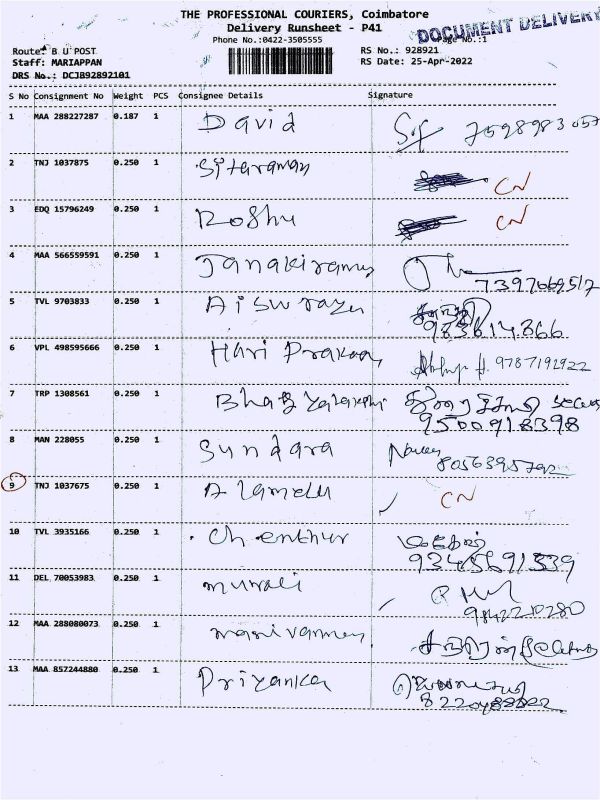 THE PROFESSIONAL COURIERS, Coimbatore
Delivery Runsheet - P41
DOCUMENT DELIVERY
Phone No.:0422-3505555
Page No.:1
Route: B U POST
RS No.: 928921
Staff: MARIAPPAN
RS Date: 25-Apr-2022
DRS No.: DCJB92892101
S No Consignment No Weight PCS Consignee Details Signature
1 MAA 288227287 0.187 1 David 7598983057
2 TNJ 1037875 0.250 1 Sitaraman CN
3 EDQ 15796249 0.250 1 Roshu CN
4 MAA 566559591 0.250 1 7397669517
5 TVL 9703833 0.250 1
6 VPL 498595666 0.250 1 Hari 9787191922
7 TRP 1308561 0.250 1 9500918398
8 MAN 228055 0.250 1 Sundara
9 TNJ 1037675 0.250 1 Alamelu CN
10 TVL 3935166 0.250 1 Chenthur
11 DEL 70053983 0.250 1 Murali
12 MAA 288080073 0.250 1
13 MAA 857244880 0.250 1 Priyanka